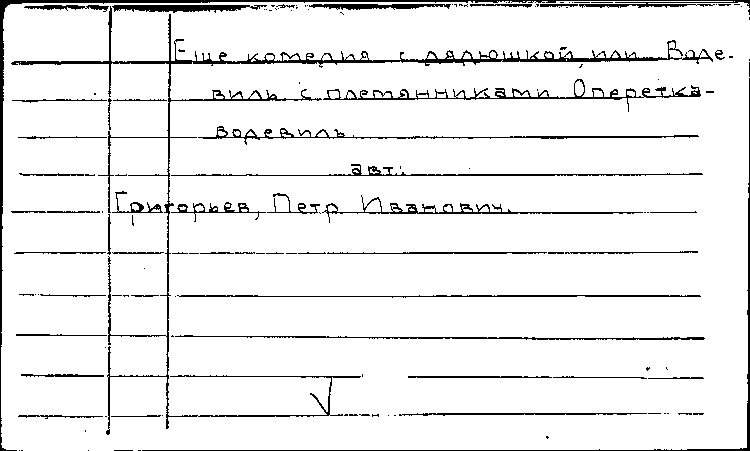 Еще комедия с дядюшкой, или Воде-
виль с племянниками Оперетка-
водевиль.
авт.:
Григорьев, Петр Иванович.